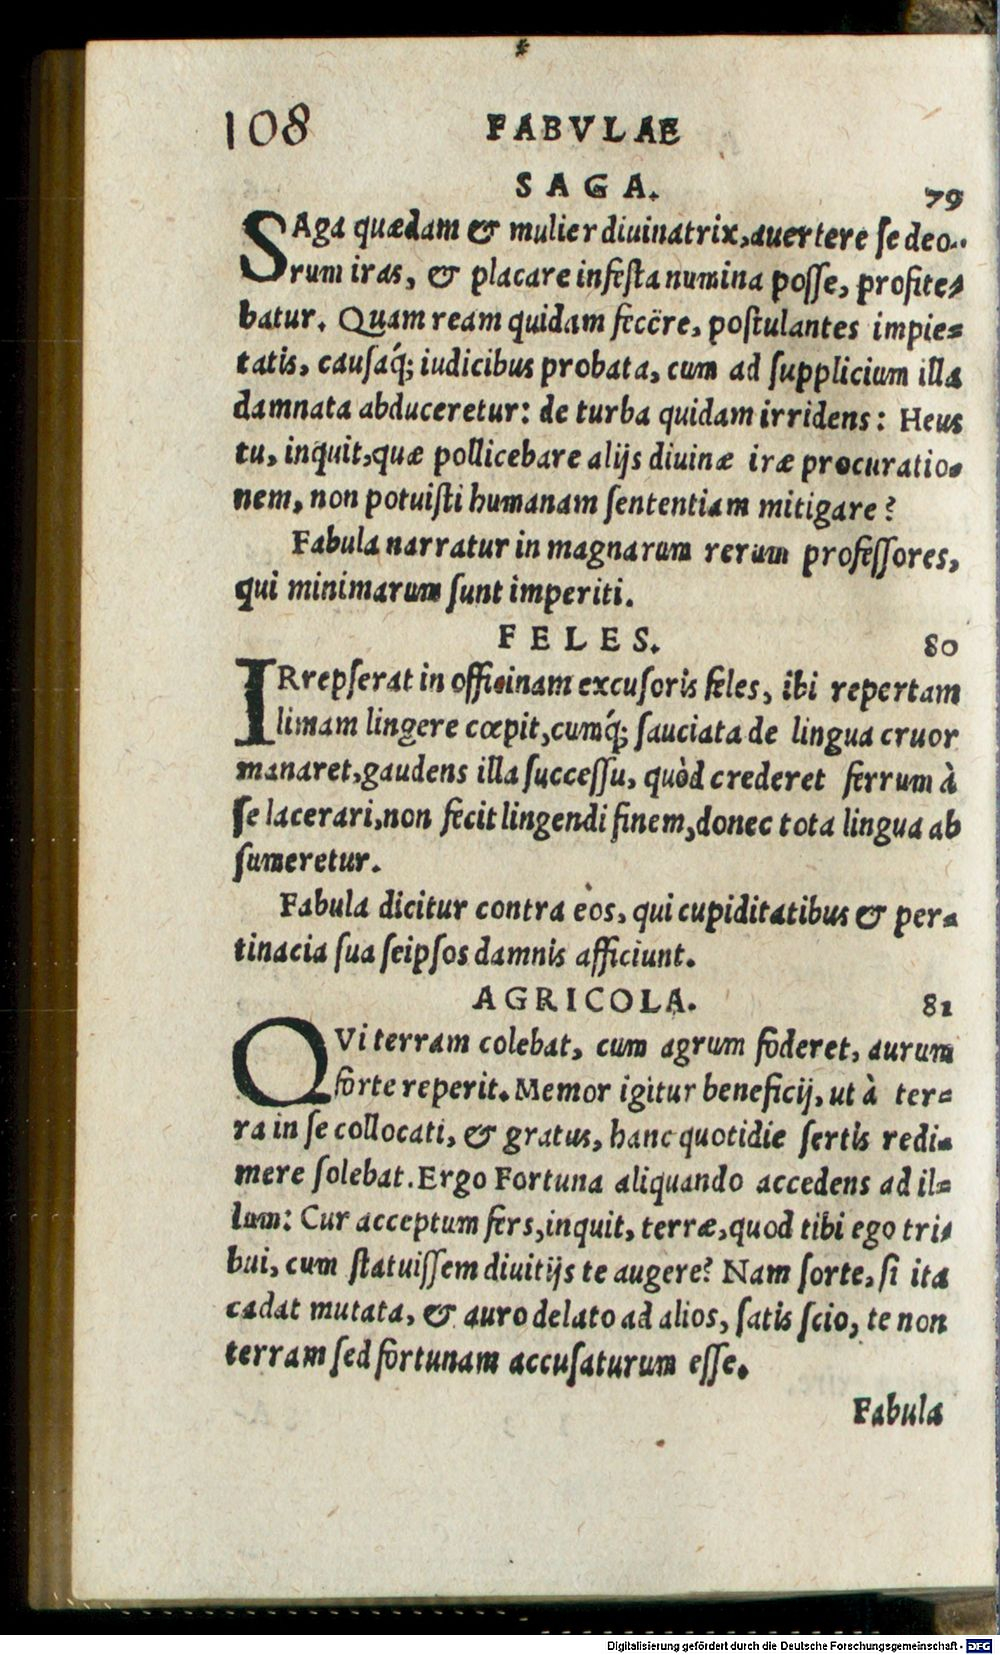 108 FABVLAE
SAGA. 79
SAga quædam & mulier diuinatrix, auertere se deo-
rum iras, & placare infesta numina posse, profite-
batur. Quam ream quidam fecêre, postulantes impie-
tatis, causaq́; iudicibus probata, cum ad supplicium illa
damnata abduceretur: de turba quidam irridens: Heus
tu, inquit, quæ pollicebare alijs diuinæ iræ procuratio-
nem, non potuisti humanam sententiam mitigare?
Fabula narratur in magnarum rerum professores,
qui minimarum sunt imperiti.
FELES. 80
IRrepserat in officinam excusoris feles, ibi repertam
limam lingere cœpit, cumq́; sauciata de lingua cruor
manaret, gaudens illa successu, quòd crederet ferrum à
se lacerari, non fecit lingendi finem, donec tota lingua ab
sumeretur.
Fabula dicitur contra eos, qui cupiditatibus & per-
tinacia sua seipsos damnis afficiunt.
AGRICOLA. 81
QVi terram colebat, cum agrum foderet, aurum
forte reperit. Memor igitur beneficij, ut à ter-
ra in se collocati, & gratus, hanc quotidie sertis redi-
mere solebat. Ergo Fortuna aliquando accedens ad il-
lum: Cur acceptum fers, inquit, terræ, quod tibi ego tri-
bui, cum statuissem diuitijs te augere? Nam sorte, si ita
cadat mutata, & auro delato ad alios, satis scio, te non
terram sed fortunam accusaturum esse.
Fabula
Digitalisierung gefördert durch die Deutsche Forschungsgemeinschaft - DFG